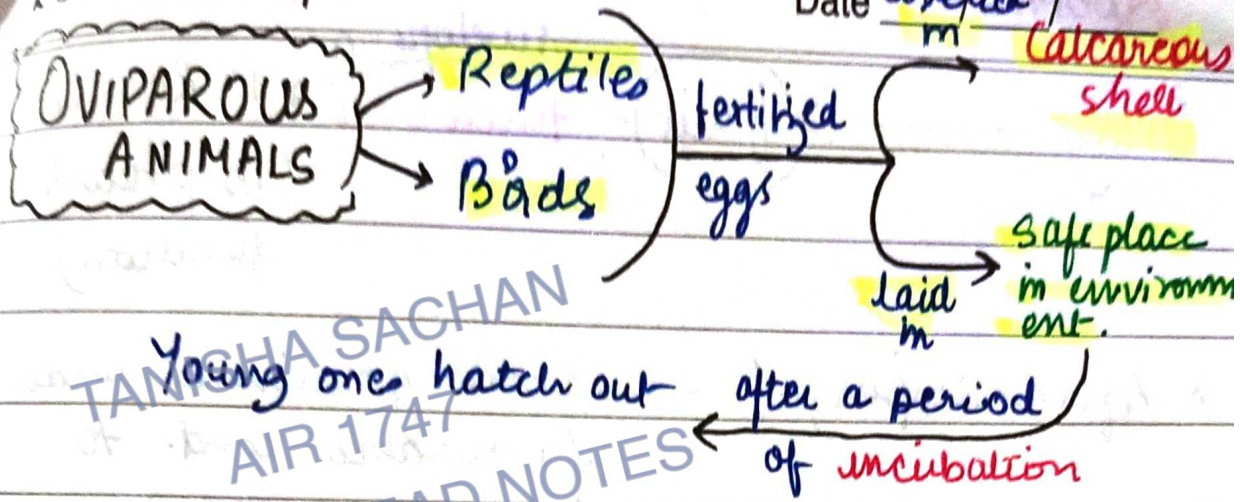 Date
m
OVIPAROUS
ANIMALS
Reptiles
Birds
fertilized
eggs
Calcareous
shell
laid
in
safe place
in environm
ent.
Young ones hatch out after a period
of incubation
TANISHA SACHAN
AIR 1747
NOTES